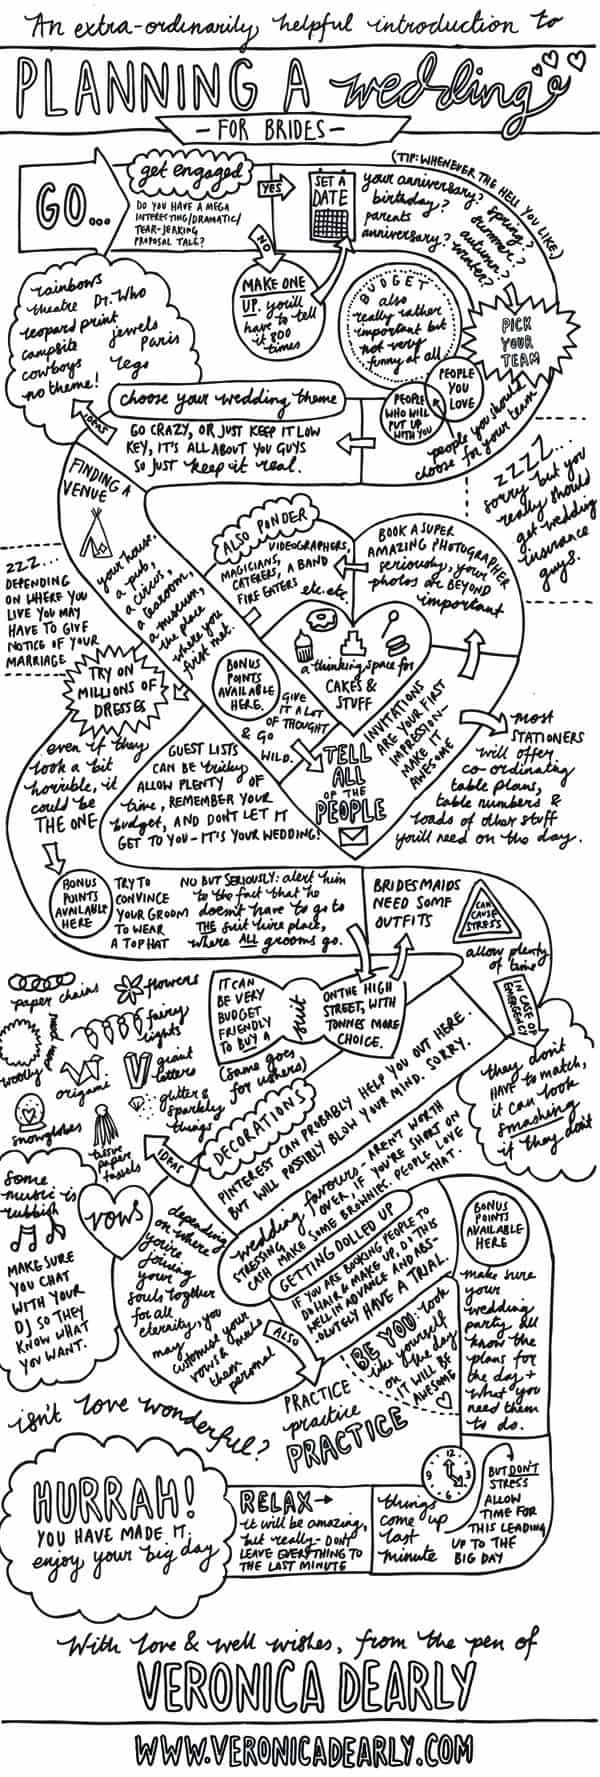 An extra-ordinarily helpful introduction to
PLANNING A wedding
- FOR BRIDES -
GO...
get engaged
DO YOU HAVE A MEGA
INTERESTING/DRAMATIC/
TEAR-JERKING
PROPOSAL TALE?
YES
NO
MAKE ONE
UP. you'll
have to tell
it 800
times
SET A
DATE
(TIP: WHENEVER THE HELL YOU LIKE.)
your anniversary?
birthday?
parents
anniversary?
spring?
summer?
autumn?
winter?
PICK
YOUR
TEAM
BUDGET
also
really rather
important but
not very
funny at all.
PEOPLE
YOU
LOVE
PEOPLE
WHO WILL
PUT UP
WITH YOU
people you should
choose for your team
choose your wedding theme
GO CRAZY, OR JUST KEEP IT LOW
KEY, IT'S ALL ABOUT YOU GUYS
SO JUST keep it real.
IDEAS
rainbows
theatre Dr. Who
leopard print
jewels
campsite
Paris
cowboys
lego
no theme!
zzzz...
sorry but you
really should
get wedding
insurance
guys.
FINDING A
VENUE
your house.
a pub,
a circus,
a tearoom,
a museum,
the place
where you
first met.
zzz...
DEPENDING
ON WHERE YOU
LIVE YOU MAY
HAVE TO GIVE
NOTICE OF YOUR
MARRIAGE
ALSO PONDER
VIDEOGRAPHERS,
MAGICIANS,
CATERERS, A BAND
FIRE EATERS
etc. etc.
BOOK A SUPER
AMAZING PHOTOGRAPHER
seriously, your
photos are BEYOND
important
a thinking space for
CAKES &
STUFF
BONUS
POINTS
AVAILABLE
HERE.
GIVE
IT A LOT
OF THOUGHT
& GO
WILD.
TELL
ALL
OF THE
PEOPLE
INVITATIONS
ARE YOUR FIRST
IMPRESSION-
MAKE IT
AWESOME
most
STATIONERS
will offer
co-ordinating
table plans,
table numbers &
loads of other stuff
you'll need on the day.
TRY ON
MILLIONS OF
DRESSES
even if they
look a bit
horrible, it
could be
THE ONE
GUEST LISTS
CAN BE tricky
ALLOW PLENTY OF
time, REMEMBER YOUR
budget, AND DON'T LET IT
GET TO YOU - IT'S YOUR WEDDING!
BONUS
POINTS
AVAILABLE
HERE
TRY TO
CONVINCE
YOUR GROOM
TO WEAR
A TOP HAT
NO BUT SERIOUSLY: alert him
to the fact that he
doesn't have to go to
THE suit hire place,
where ALL grooms go.
BRIDESMAIDS
NEED SOME
OUTFITS
CAN
CAUSE
STRESS
allow plenty
of time
IN CASE OF
EMERGENCY
they don't
HAVE to match,
it can look
smashing
if they don't
IT CAN
BE VERY
BUDGET
FRIENDLY
TO BUY A
suit
ON THE HIGH
STREET, WITH
TONNES MORE
CHOICE.
(same goes
for ushers)
paper chains
flowers
woolly
fairy
lights
origami
giant
letters
snowglobes
glitter &
sparkly
things
tissue
paper
tassels
IDEAS
DECORATIONS
PINTEREST CAN PROBABLY HELP YOU OUT HERE.
BUT WILL POSSIBLY BLOW YOUR MIND. SORRY.
wedding favours AREN'T WORTH
STRESSING OVER, IF YOU'RE SHORT ON
CASH MAKE SOME BROWNIES. PEOPLE LOVE
THAT.
GETTING DOLLED UP
IF YOU ARE BOOKING PEOPLE TO
DO HAIR & MAKE UP, DO THIS
WELL IN ADVANCE AND ABS-
OLUTELY HAVE A TRIAL.
BE YOU: look
like yourself
on the day
IT WILL BE
AWESOME
vows
depending
on where
you're
joining
your
souls together
for all
eternity, you
may
customise your
vows & make
them
personal
ALSO
PRACTICE
practice
PRACTICE
Some
music is
rubbish
MAKE SURE
YOU CHAT
WITH YOUR
DJ SO THEY
KNOW WHAT
YOU WANT.
BONUS
POINTS
AVAILABLE
HERE
make sure
your
wedding
party all
know the
plans for
the day +
what you
need them
to do.
isn't love wonderful?
12
3
6
9
things
come up
last
minute
BUT DON'T
STRESS
ALLOW
TIME FOR
THIS LEADING
UP TO THE
BIG DAY
RELAX→
it will be amazing,
but really - DON'T
LEAVE EVERYTHING TO
THE LAST MINUTE
HURRAH!
YOU HAVE MADE IT.
enjoy your big day
With love & well wishes, from the pen of
VERONICA DEARLY
WWW.VERONICADEARLY.COM